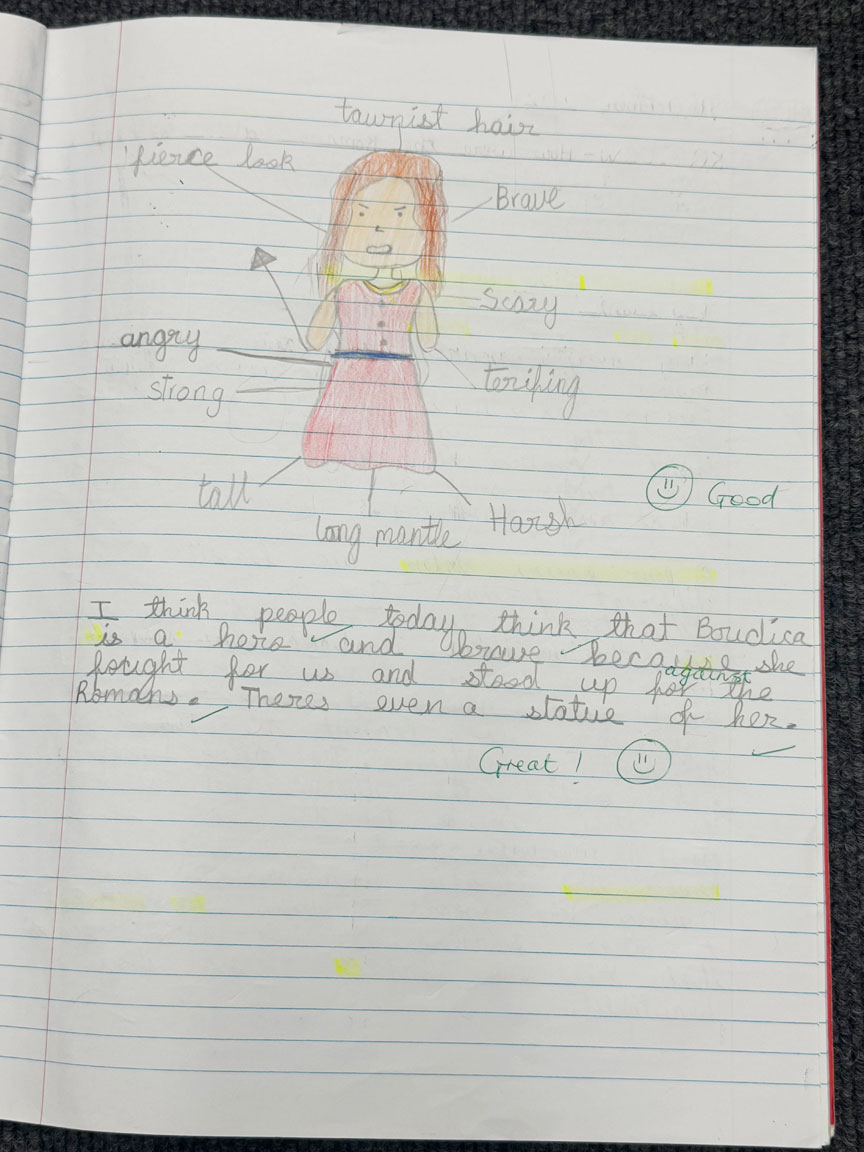 tawnist hair
fierce look
Brave
Scary
angry
terifing
strong
tall
long mantle
Harsh
Good
I think people today think that Boudica
is a hero and brave because she
fought for us and stood up for the
against
Romans. Theres even a statue of her.
Great!